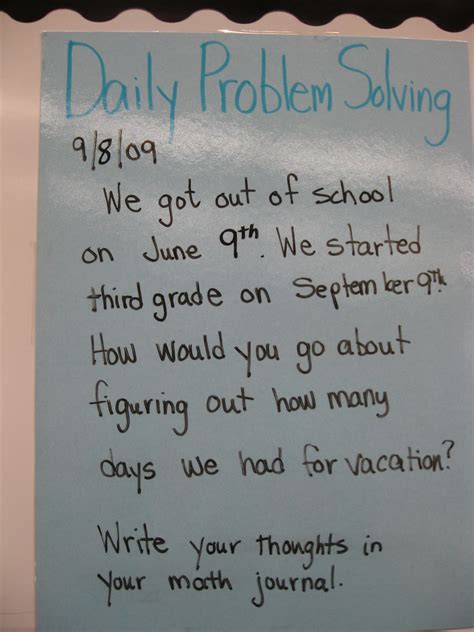 Daily Problem Solving
9/8/09
We got out of school
on June 9th. We started
third grade on September 9th.
How would you go about
figuring out how many
days we had for vacation?
Write your thoughts in
your math journal.